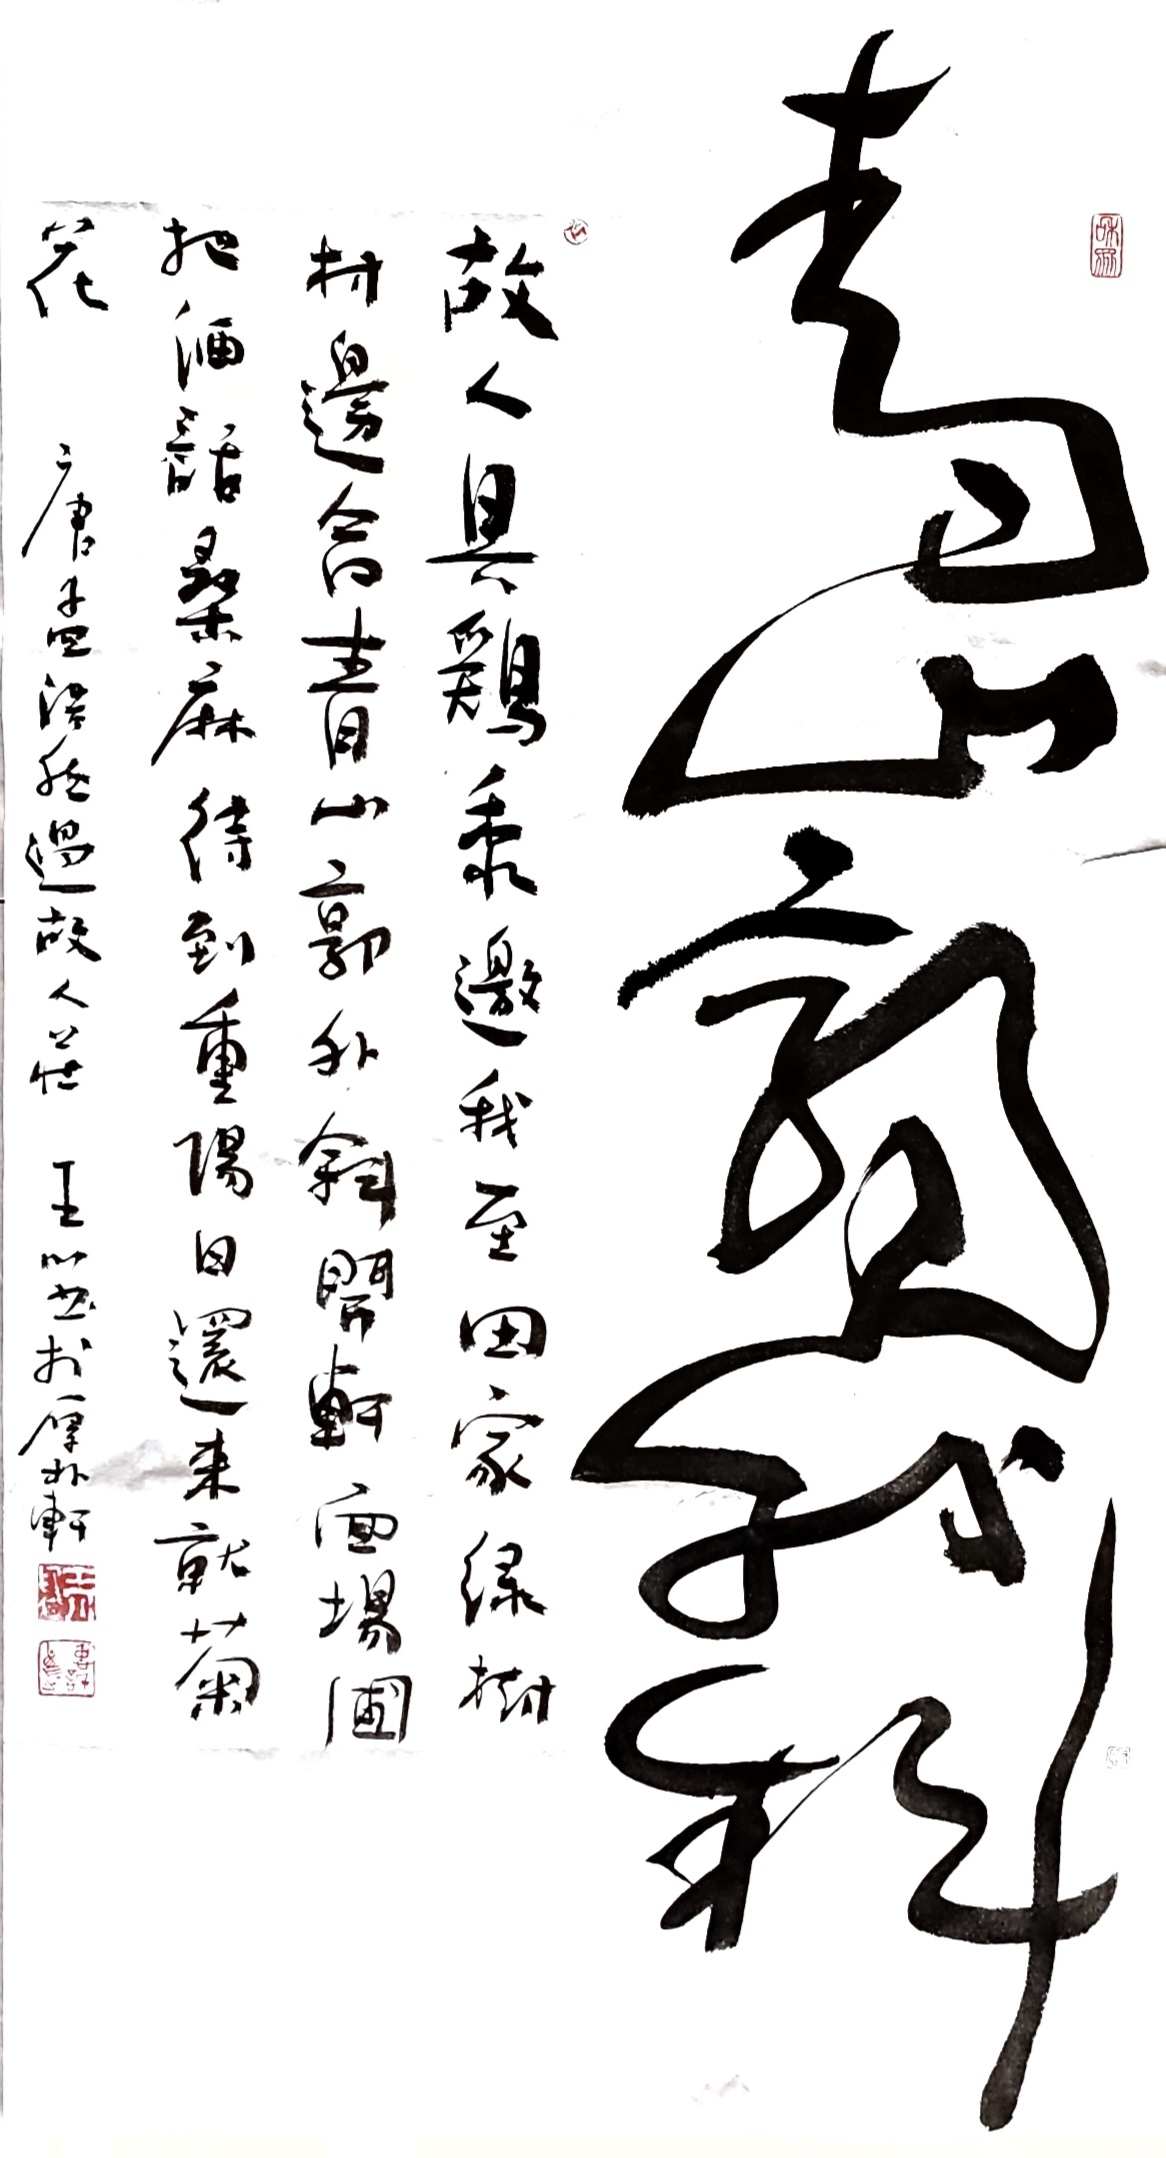 青山郭外斜
故人具鷄黍邀我至田家绿樹
村邊合青山郭外斜開軒面場圃
把酒話桑麻待到重陽日還来就菊
花 唐孟浩然過故人莊 王 於厚朴軒